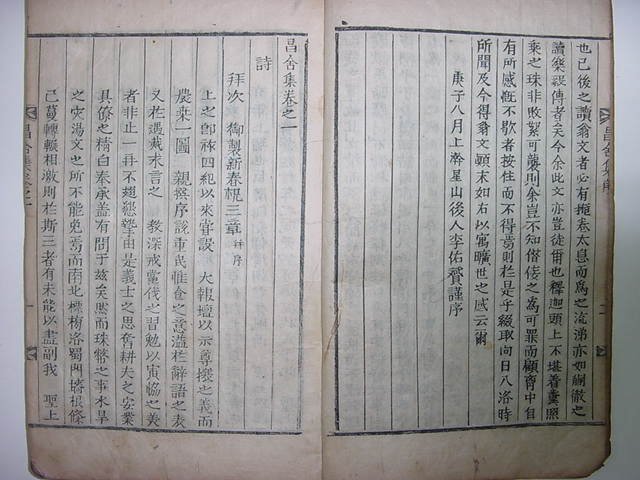 也已後之讀翁文者必有掩卷太息而爲之流涕亦如蒯徹之
讀樂毅傳者矣今余此文亦豈徒爾也釋迦頭上不堪着糞照
乘之珠非敗絮可襲則余豈不知僭倭之爲可罪而顧胷中自
有所感慨不歇者按住而不得焉則於是乎綴取向日八洛時
所聞及今得翁文顚末如右以寓曠世之感云爾
庚子八月上澣星山後人李佑贇謹序
昌舍集卷之一
詩
拜次 御製新春覛三章 幷序
上之卽祚四紀以來官設 大報壇以示尊攘之義而
農桒一圖 親撰序該重民惟食之意溢於辭語之表
又於遇戴求言之 敎深戒黨伐之習勉以寅恊之美
者非止一再不翅懇摯由是義士之思奮耕夫之安業
具僚之精白秦承蓋有間于玆矣然而珠幣之事水旱
之灾湯文也所不能免焉而南北標榜洛蜀門墻根條
己蔓轉輾相激則於斯三者有未能以盡副我 聖上